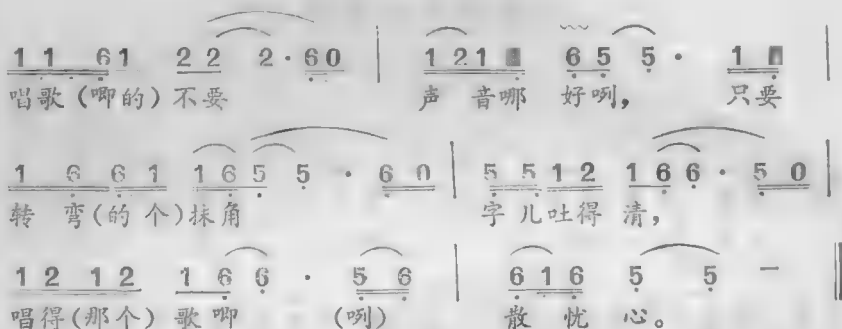 1 1 6 1 2 2 2 · 6 0 | 1 2 1 6 5 5 · 1 |
唱歌(唧的)不要 声音哪 好咧, 只要
1 6 6 1 1 6 5 5 · 6 0 | 5 5 1 2 1 6 6 · 5 0 |
转弯(的个)抹角 字儿吐得清,
1 2 1 2 1 6 6 · 5 6 | 6 1 6 5 5 – ‖
唱得(那个)歌唧 (咧) 散忧心。